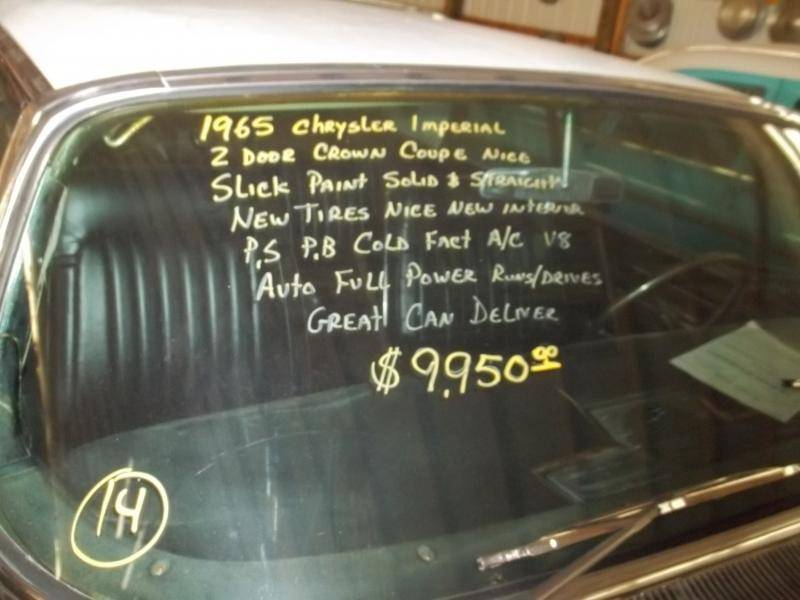 1965 Chrysler Imperial
2 Door Crown Coupe Nice
Slick Paint Solid & Straight
New Tires Nice New Interior
P.S P.B Cold Fact A/C V8
Auto Full Power Runs/Drives
Great Can Deliver
$9,950.00
14